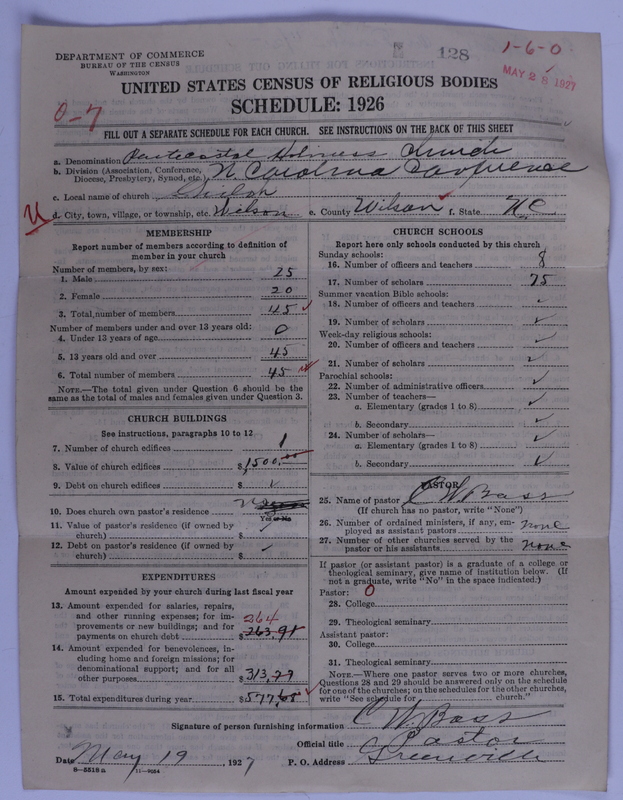 DEPARTMENT OF COMMERCE
BUREAU OF THE CENSUS
WASHINGTON
128
1-6-0
MAY 28 1927
UNITED STATES CENSUS OF RELIGIOUS BODIES
SCHEDULE: 1926
0-7
FILL OUT A SEPARATE SCHEDULE FOR EACH CHURCH. SEE INSTRUCTIONS ON THE BACK OF THIS SHEET
a. Denomination Pentecostal Holiness Church
b. Division (Association, Conference, Diocese, Presbytery, Synod, etc.) N Carolina Confrence
c. Local name of church
d. City, town, village, or township, etc. Wilson e. County Wilson f. State N.C
MEMBERSHIP
Report number of members according to definition of
member in your church
Number of members, by sex:
1. Male 25
2. Female 20
3. Total, number of members 45
Number of members under and over 13 years old:
4. Under 13 years of age 0
5. 13 years old and over 45
6. Total number of members 45
NOTE.—The total given under Question 6 should be the
same as the total of males and females given under Question 3.
CHURCH BUILDINGS
See instructions, paragraphs 10 to 12
7. Number of church edifices 1
8. Value of church edifices $1,500.00
9. Debt on church edifices $ ✓
10. Does church own pastor's residence
Yes or No
11. Value of pastor's residence (if owned by
church) $ ✓
12. Debt on pastor's residence (if owned by
church) $ ✓
EXPENDITURES
Amount expended by your church during last fiscal year
13. Amount expended for salaries, repairs,
and other running expenses; for im-
264
provements or new buildings; and for
payments on church debt $263.91
14. Amount expended for benevolences, in-
cluding home and foreign missions; for
denominational support; and for all
other purposes $313,79
15. Total expenditures during year $577.65
CHURCH SCHOOLS
Report here only schools conducted by this church
Sunday schools:
16. Number of officers and teachers 8
17. Number of scholars 75
Summer vacation Bible schools:
18. Number of officers and teachers ✓
19. Number of scholars ✓
Week-day religious schools:
20. Number of officers and teachers ✓
21. Number of scholars ✓
Parochial schools:
22. Number of administrative officers ✓
23. Number of teachers—
a. Elementary (grades 1 to 8) ✓
b. Secondary ✓
24. Number of scholars—
a. Elementary (grades 1 to 8) ✓
b. Secondary ✓
PASTOR
25. Name of pastor C W Bass
(If church has no pastor, write "None")
26. Number of ordained ministers, if any, em-
ployed as assistant pastors none
27. Number of other churches served by the
pastor or his assistants none
If pastor (or assistant pastor) is a graduate of a college or
theological seminary, give name of institution below. (If
not a graduate, write "No" in the space indicated.)
Pastor: 0
28. College
29. Theological seminary
Assistant pastor:
30. College
31. Theological seminary
NOTE.—Where one pastor serves two or more churches,
Questions 28 and 29 should be answered only on the schedule
for one of the churches; on the schedules for the other churches,
write "See schedule for church."
Signature of person furnishing information C W Bass
Official title Pastor
Date May 19, 1927 P. O. Address Greenville
8-5518 a 11-9024